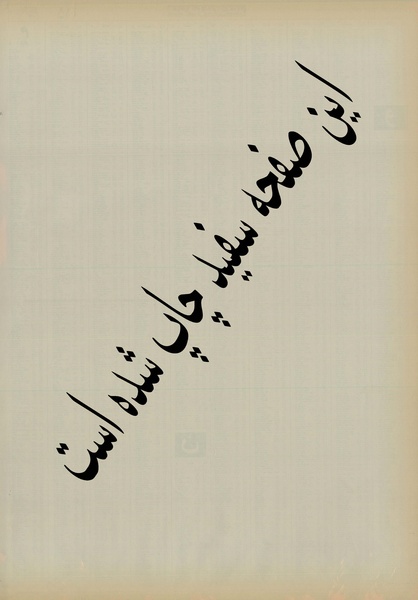 این صفحه سفید چاپ شده است